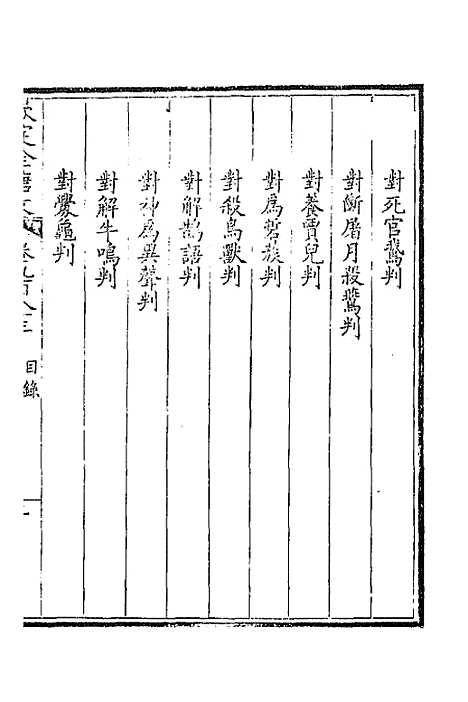 對死官鶩判
對斷屠月殺鷰判
對養賣兒判
對為哲蔟判
對殺鳥獸判
對解鵲語判
對神為異聲判
對解牛鳴判
對爨龜判
欽定全唐文 卷九百八十三 目錄